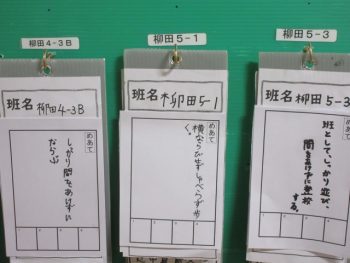 柳田4-3B
班名 柳田4-3B
めあて
しっかり間をあけずに
ならぶ
柳田5-1
班名 柳田5-1
めあて
横ならびせずしゃべらず歩
く。
柳田5-3
班名 柳田5-3
めあて
班として、しっかり並び、
間をあけずに登校
する。